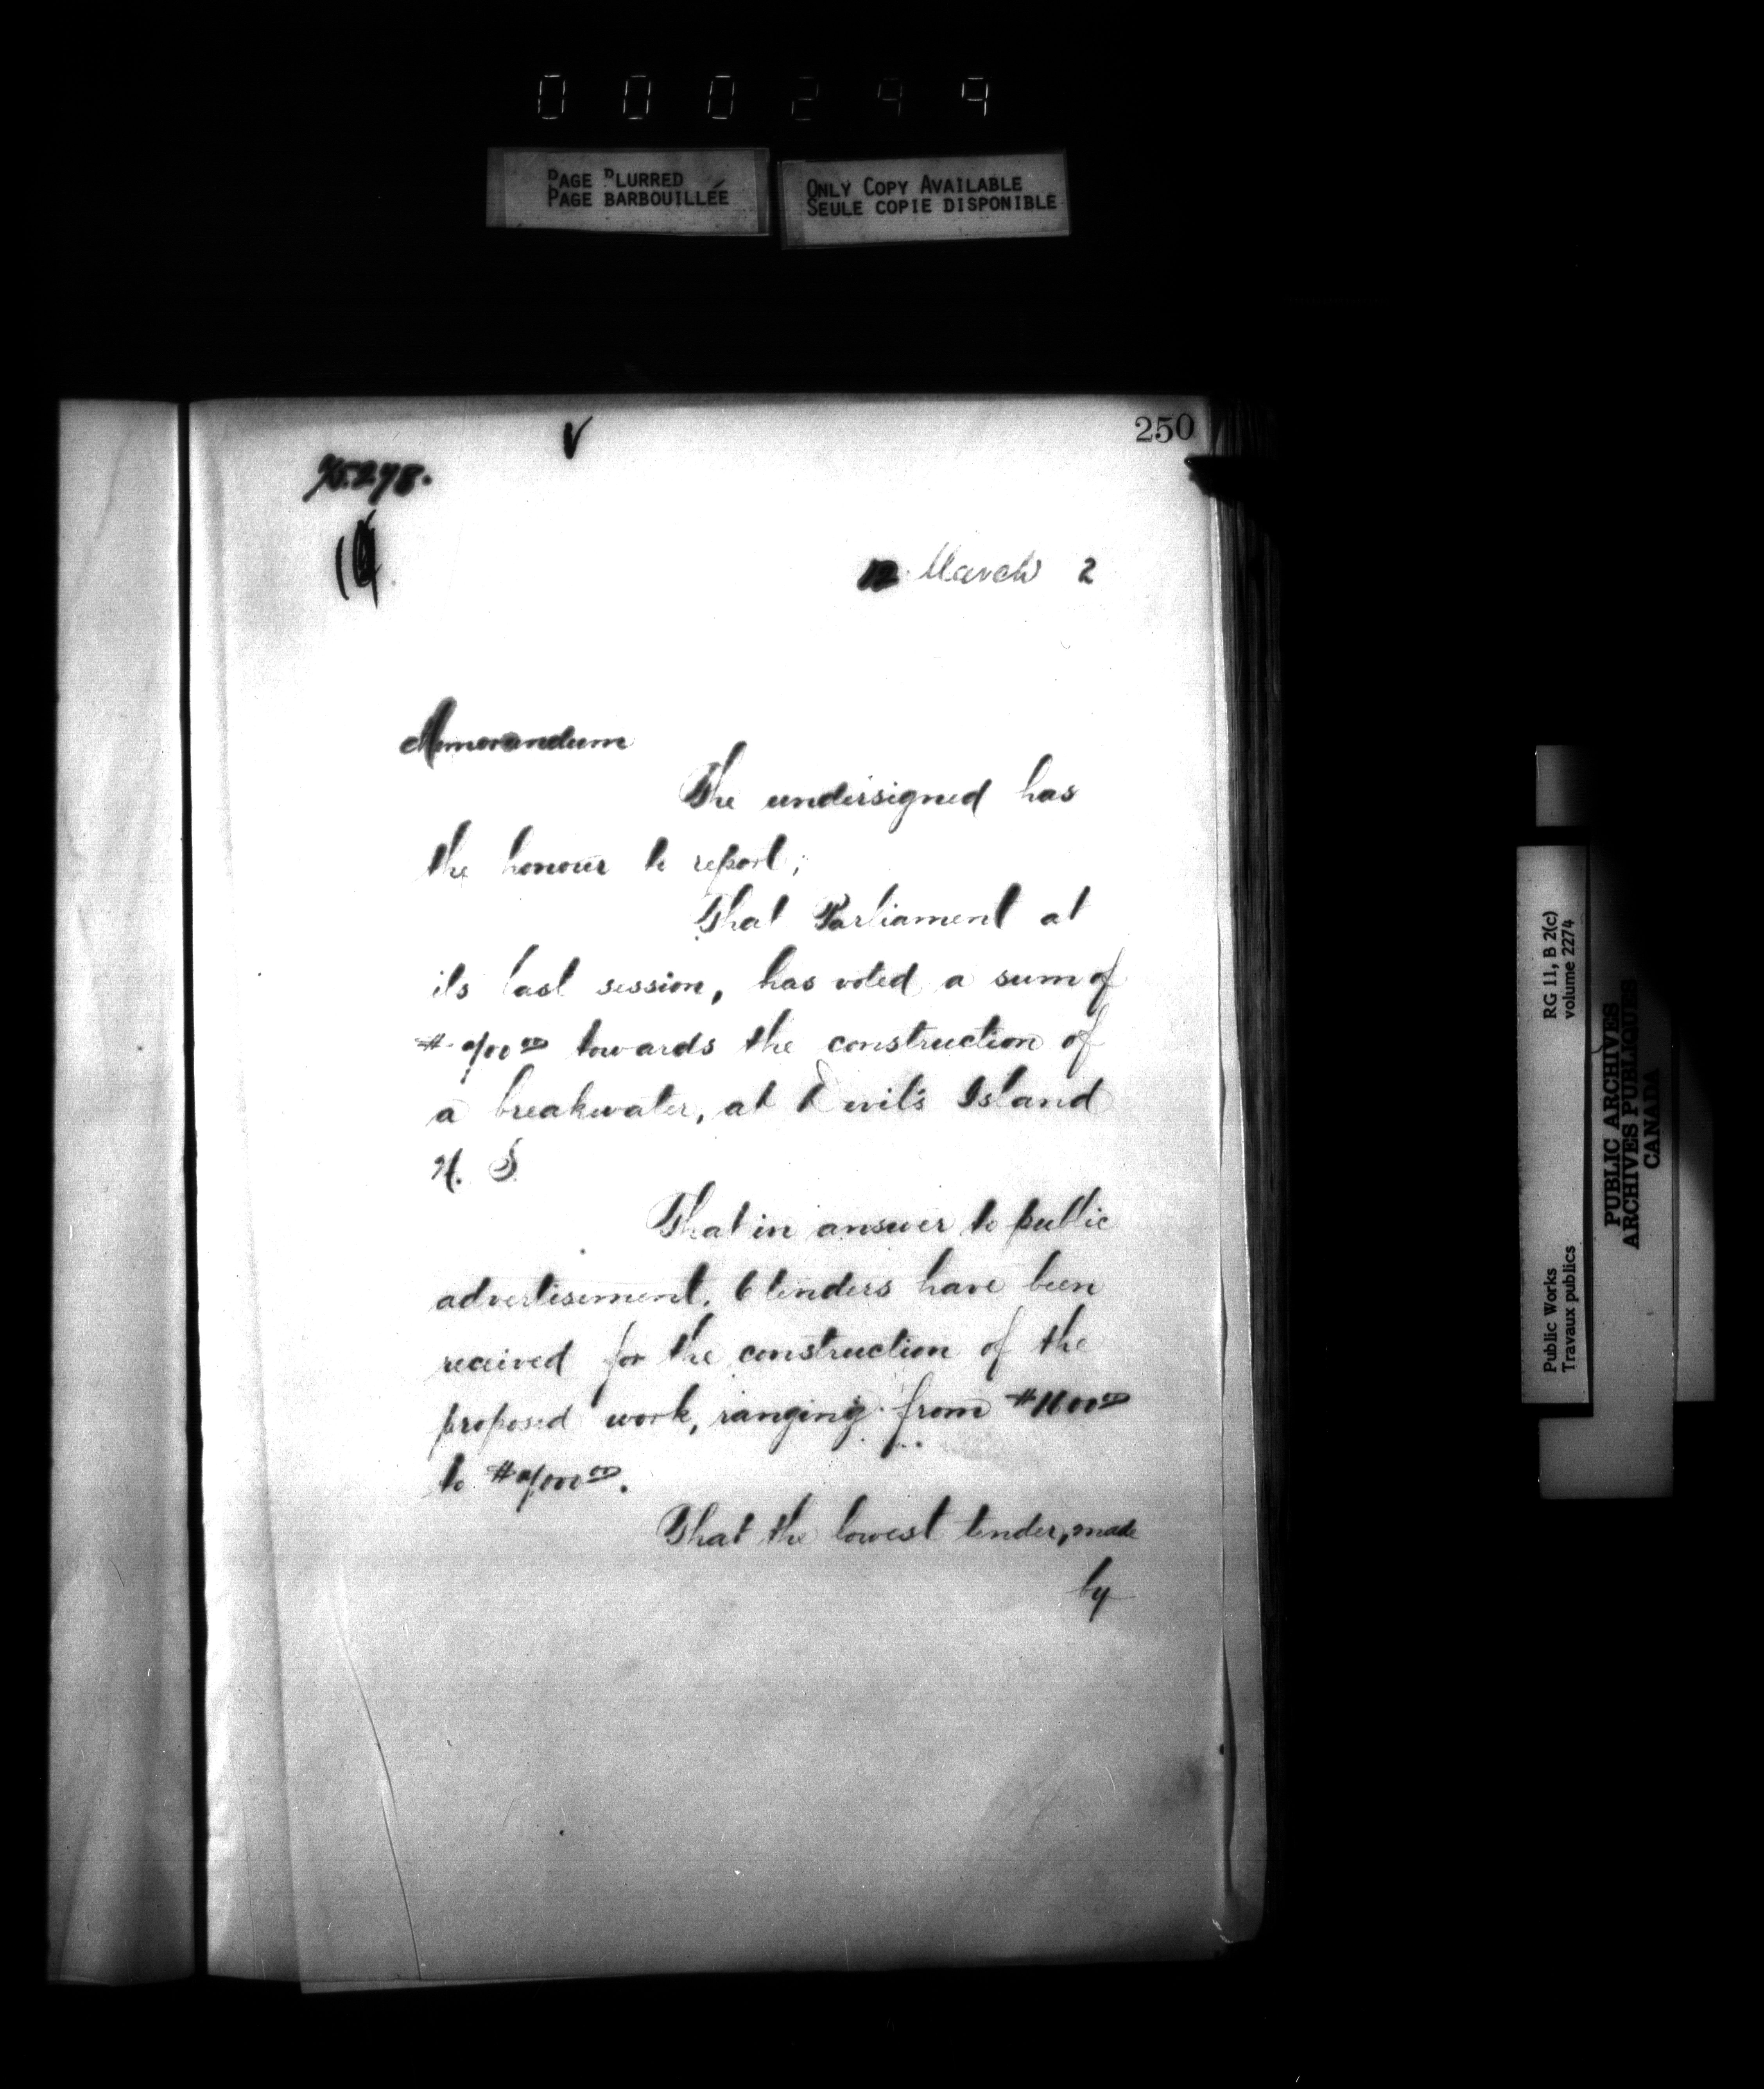 000249
PAGE BLURRED
PAGE BARBOUILLÉE
ONLY COPY AVAILABLE
SEULE COPIE DISPONIBLE
250
12 March 2
Memorandum
The undersigned has
the honour to report;
That Parliament at
its last session, has voted a sum of
towards the construction of
a breakwater, at Devil's Island
N. S.
That in answer to public
advertisement, 6 tenders have been
received for the construction of the
proposed work, ranging from
to
That the lowest tender, made
by
RG 11, B 2(c)
volume 2274
Public Works
Travaux publics
PUBLIC ARCHIVES
ARCHIVES PUBLIQUES
CANADA